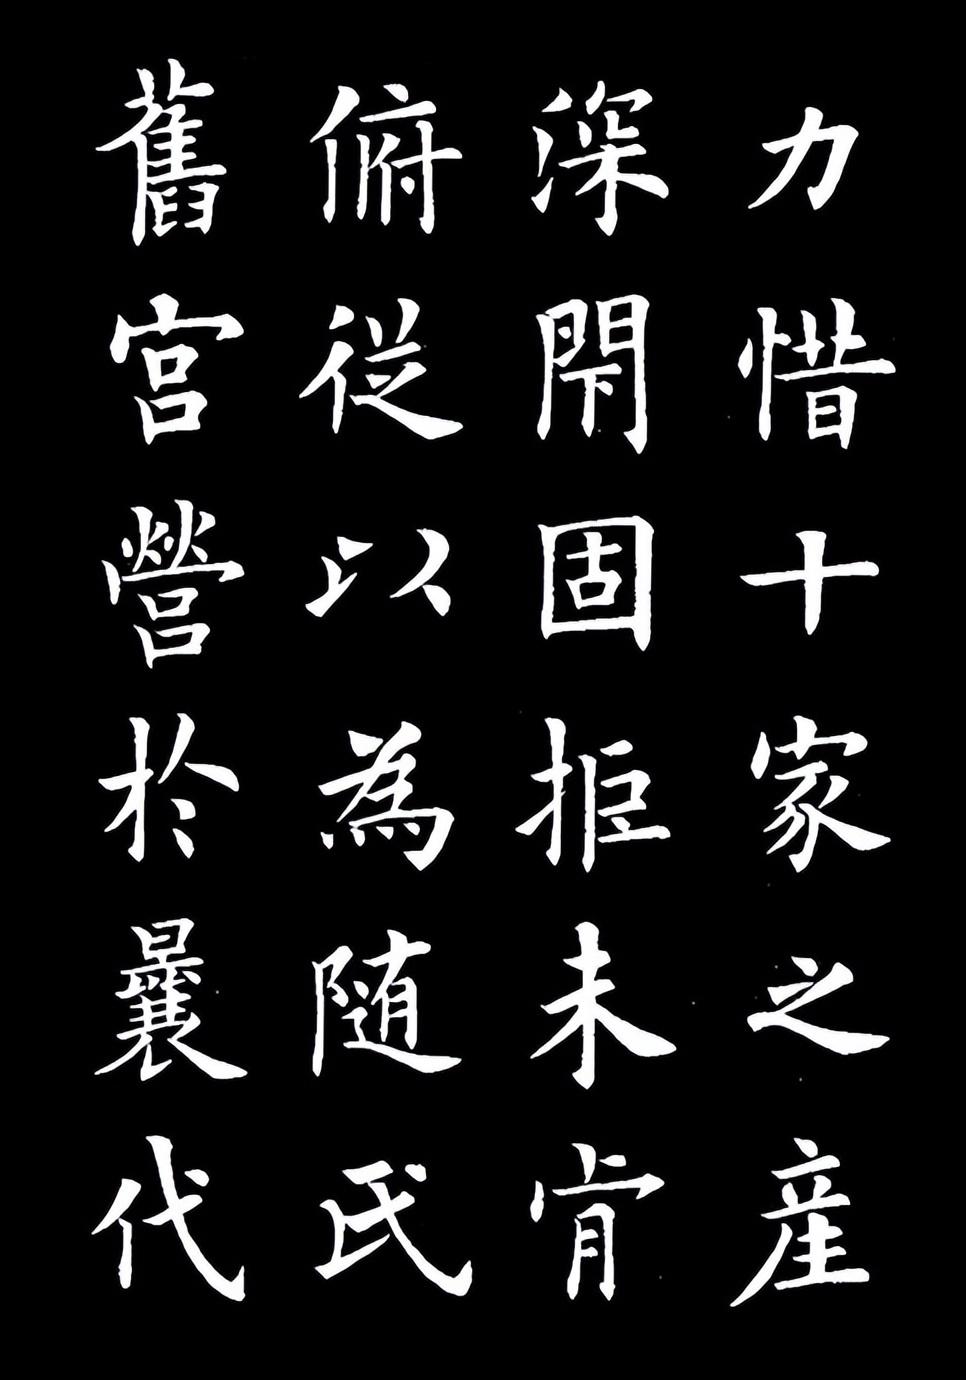 力惜十家之產
深閇固拒未肯
俯從以為随氏
舊宮營於曩代